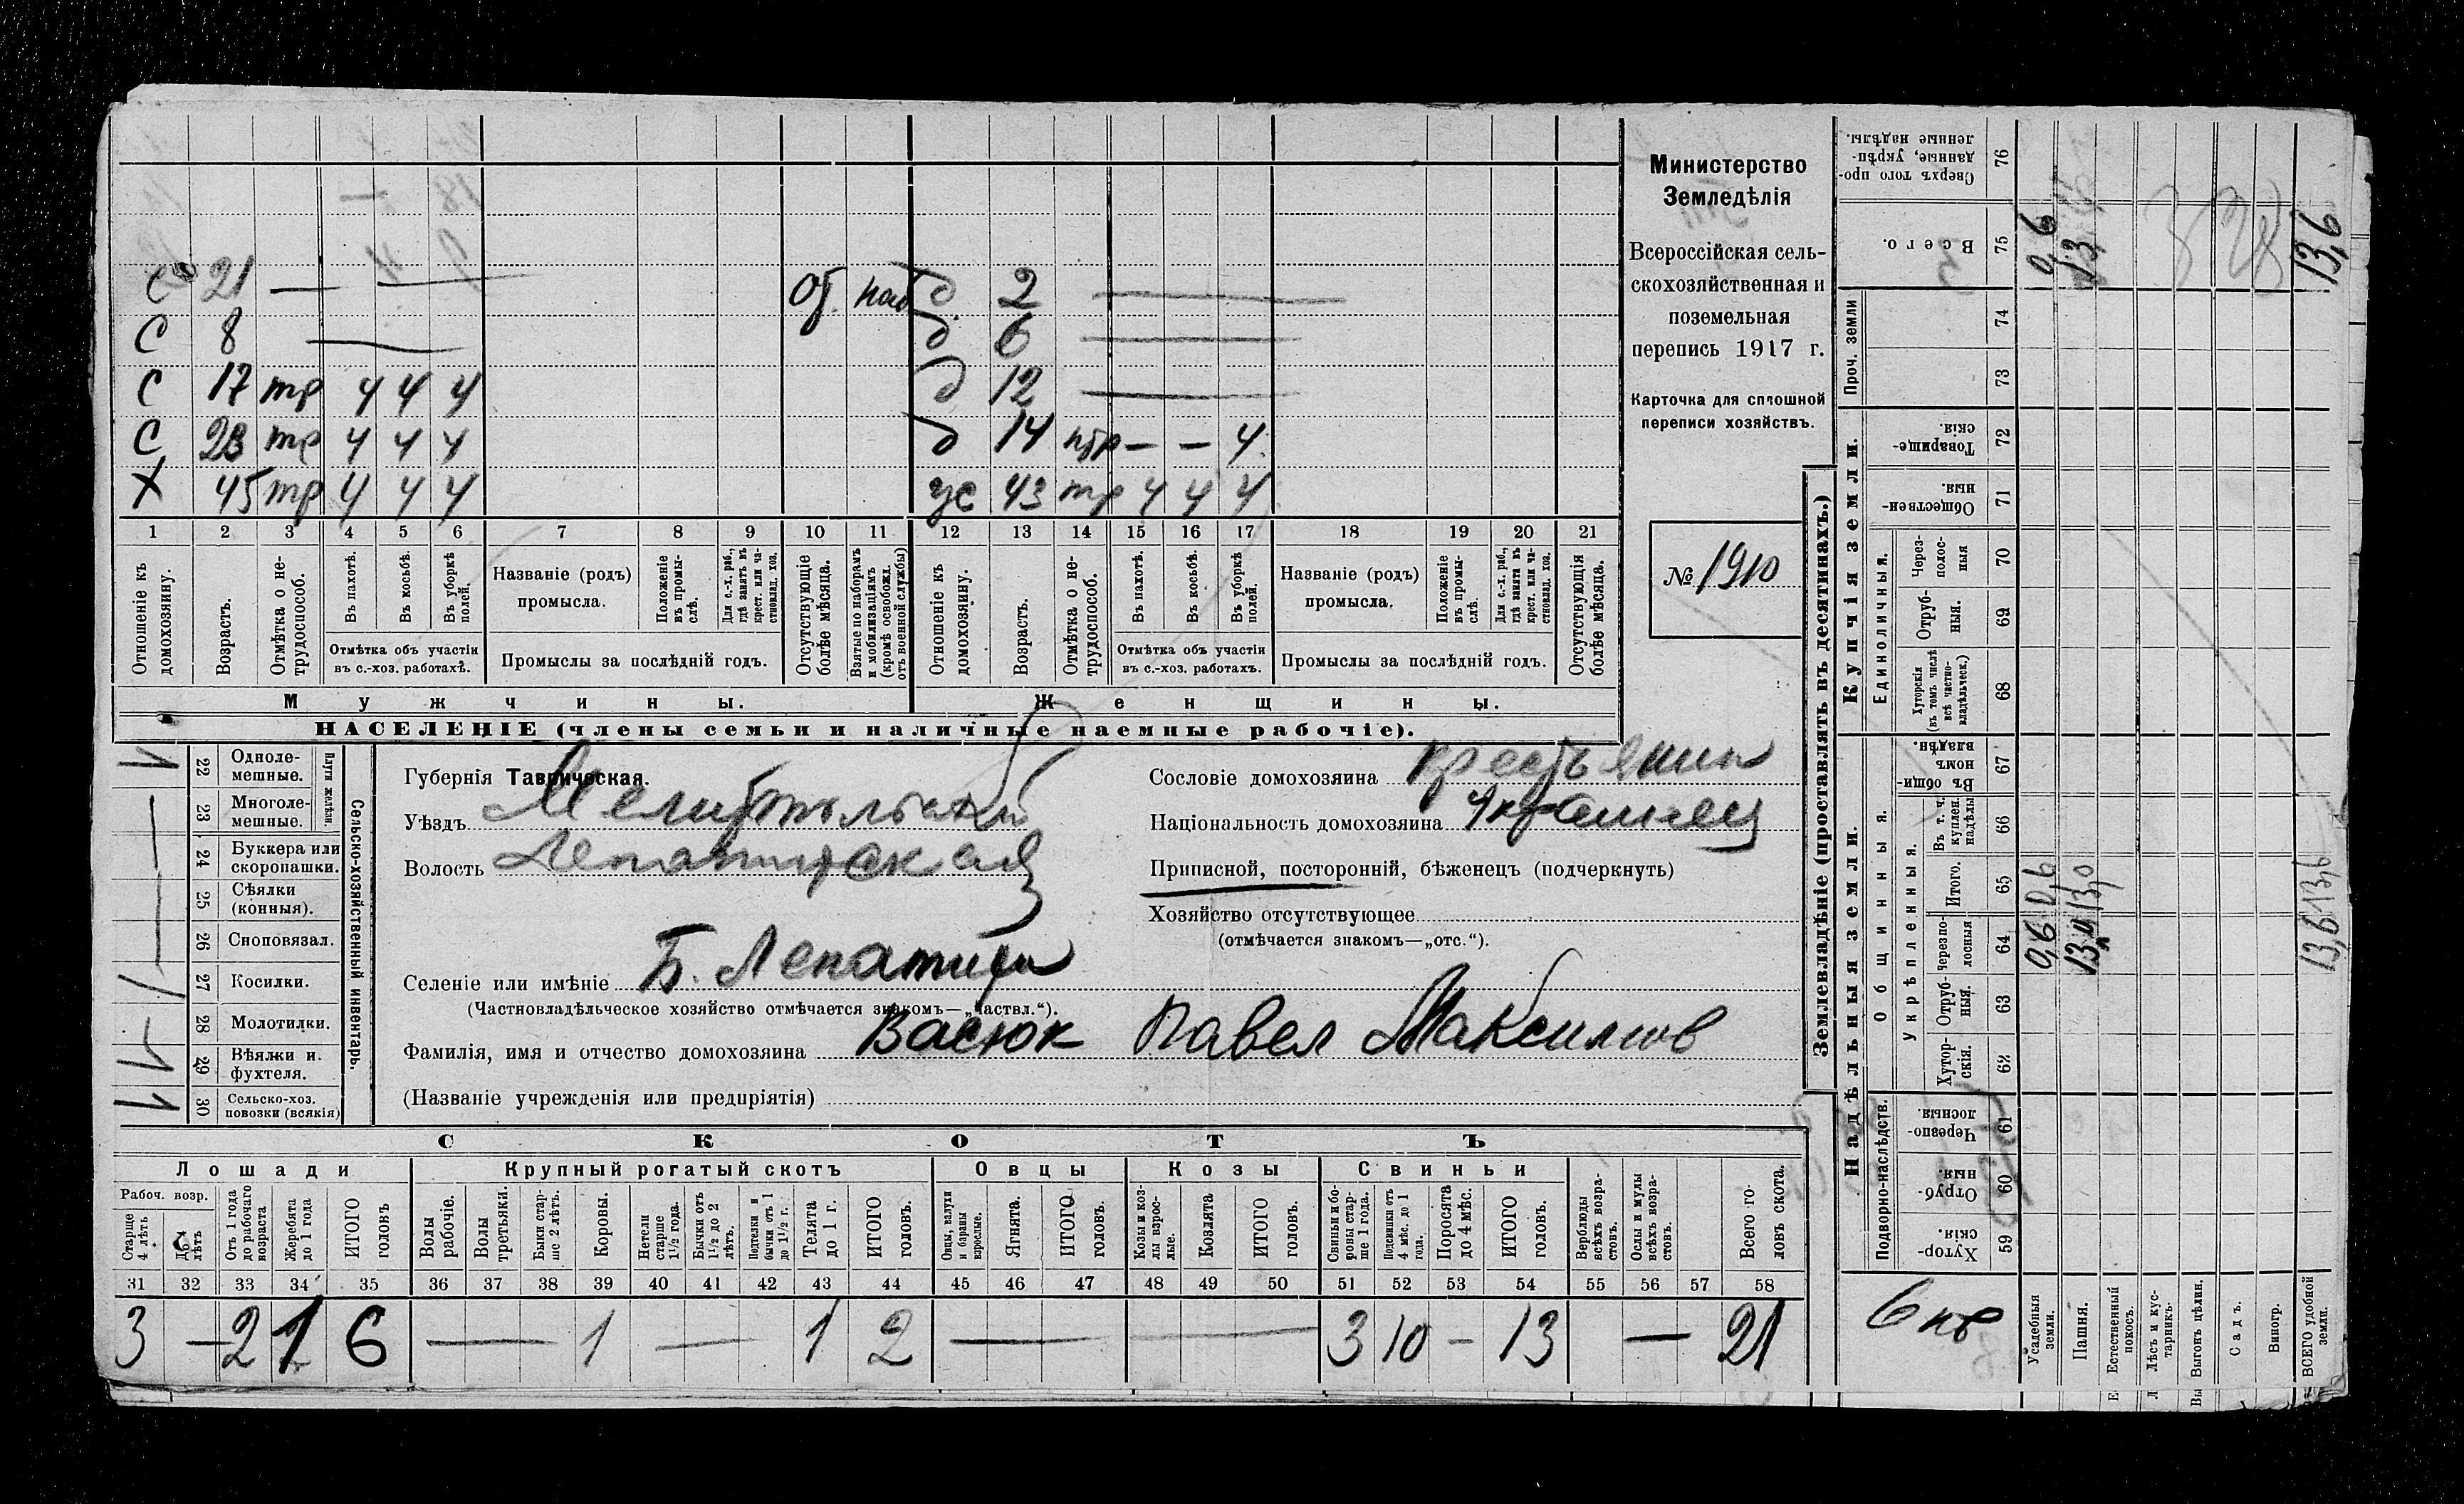 Министерство
Земледѣлія
Всероссійская сель-
скохозяйственная и
поземельная
перепись 1917 г.
Карточка для сплошной
переписи хозяйствъ.
№ 1910
с 21 — — от. 2 —
с 8 — д 6 —
с 17 тр ч ч ч д 12 —
с 23 тр ч ч ч д 14 птр — — ч
х 45 тр ч ч ч же 43 тр ч ч ч
1 2 3 4 5 6 7 8 9 10 11 12 13 14 15 16 17 18 19 20 21
Отношеніе къ домохозяину.
Возрастъ.
Отмѣтка о не-трудоспособ.
Въ пахотѣ.
Въ косьбѣ.
Въ уборкѣ полей.
Отмѣтка объ участіи
въ с.-хоз. работахъ.
Названіе (родъ)
промысла.
Положеніе въ промы-слѣ.
Для с.-х. раб., гдѣ занятъ въ крест. или ча-стновлад. хоз.
Промыслы за послѣдній годъ.
Отсутствующіе болѣе мѣсяца.
Взятые по наборамъ и мобилизаціямъ (кромѣ освобожд. отъ военной службы)
Отношеніе къ домохозяину.
Возрастъ.
Отмѣтка о не-трудоспособ.
Въ пахотѣ.
Въ косьбѣ.
Въ уборкѣ полей.
Отмѣтка объ участіи
въ с.-хоз. работахъ.
Названіе (родъ)
промысла.
Положеніе въ промы-слѣ.
Для с.-х. раб., гдѣ занята въ крест. или ча-стновлад. хоз.
Промыслы за послѣдній годъ.
Отсутствующія болѣе мѣсяца.
Мужчины.
Женщины.
НАСЕЛЕНІЕ (члены семьи и наличные наемные рабочіе).
22 Одноле-мешные.
23 Многоле-мешные.
Плуги желѣзн.
24 Буккера или скоропашки.
25 Сѣялки (конныя).
26 Сноповязал.
27 Косилки.
28 Молотилки.
29 Вѣялки и фухтеля.
30 Сельско-хоз. повозки (всякія)
Сельско-хозяйственный инвентарь.
Губернія Таврическая.
Уѣздъ Мелитопольский
Волость Лепатихская
Селеніе или имѣніе Б. Лепатиха
(Частновладѣльческое хозяйство отмѣчается знакомъ—„частвл.“).
Сословіе домохозяина крестьянин
Національность домохозяина Украинец
Приписной, посторонній, бѣженецъ (подчеркнуть)
Хозяйство отсутствующее
(отмѣчается знакомъ—„отс.“).
Фамилія, имя и отчество домохозяина Васюк Павел Максимов
(Названіе учрежденія или предпріятія)
СКОТЪ
Лошади
Крупный рогатый скотъ
Овцы
Козы
Свиньи
Рабоч. возр.
Старше 4 лѣтъ
До 4 лѣтъ
Отъ 1 года до рабочаго возраста
Жеребята до 1 года
ИТОГО головъ
Волы рабочіе.
Волы третьяки.
Быки стар-ше 2 лѣтъ.
Коровы.
Нетели старше 1½ года.
Бычки отъ 1½ до 2 лѣтъ.
Подтелки и бычки отъ 1 до 1½ г.
Телята до 1 г.
ИТОГО головъ.
Овцы, валухи и бараны взрослые.
Ягнята.
ИТОГО головъ.
Козы и коз-лы взрос-лые.
Козлята
ИТОГО головъ.
Свиньи и бо-ровы стар-ше 1 года.
Подсвинки отъ 4 мѣс. до 1 года.
Поросята до 4 мѣс.
ИТОГО головъ.
Верблюды всѣхъ возра-стовъ.
Ослы и мулы всѣхъ возра-стовъ.
Всего го-ловъ скота.
31 32 33 34 35 36 37 38 39 40 41 42 43 44 45 46 47 48 49 50 51 52 53 54 55 56 57 58
3 — 2 1 6 — 1 — 1 2 — — 3 10 — 13 — 21
Землевладѣніе (проставлять въ десятинахъ.)
Надѣльныя земли.
Купчія земли.
Проч. земли
Подворно-наслѣдств.
Общинныя.
Укрѣпленныя.
Единоличныя.
Хутор-скія. 59
Отруб-ныя. 60
Черезпо-лосныя. 61
Хутор-скія. 62
Отруб-ныя. 63
Черезпо-лосныя 64
Итого. 65
Въ т. ч. куплен. надѣлы 66
Въ общин-номъ владѣн. 67
Хуторскія (въ томъ числѣ всѣ частно-владѣльческ.) 68
Отруб-ныя. 69
Через-полос-ныя 70
Обществен-ныя. 71
Товарище-скія. 72
73
74
Всего. 75
Сверхъ того про-данные, укрѣп-ленные надѣлы. 76
Усадебныя земли. 0,6 0,6 0,6
Пашня. 13,0 13,0 13,
Естественный покосъ.
Лѣсъ и кус-тарникъ.
Выгонъ цѣлин.
Садъ.
Виногр.
ВСЕГО удобной земли. 13,6 13,6 13,6